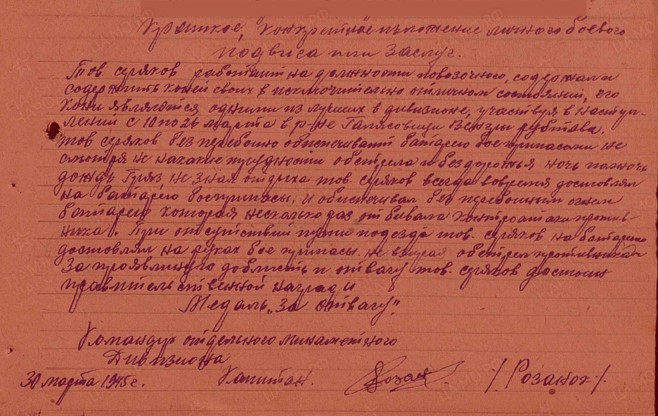 Краткое, конкретное изложение личного боевого
подвига или заслуг.
Тов Суряков работая на должности повозочного, содержал и
содержить коней своих в исключительно отличном состоянии, его
кони являются одними из лучших в дивизионе, участвуя в насту-
плений с 10 по 26 марта в р-не
тов Суряков без перебойно обеспечивал батарею боеприпасами не
смотря не накакие трудности обстрела и бездорожья ночь полночь
дождь грязь не зная отдыха тов. Суряков всегда вовремя доставлял
на батарею боеприпасы, и обеспечивал без перебойным огнем
батарею которая несколько раз отбивала контратаки против-
ника. При отсутствий пути подезда тов. Суряков на батарею
доставлял на руках бое припасы. не взирая обстрел противника
За проявленную доблесть и отвагу тов. Суряков достоин
правительственной награды
Медаль „За отвагу".
Командир отдельного минометного
Дивизиона
30 марта 1945 г. Капитан. /Розанов/